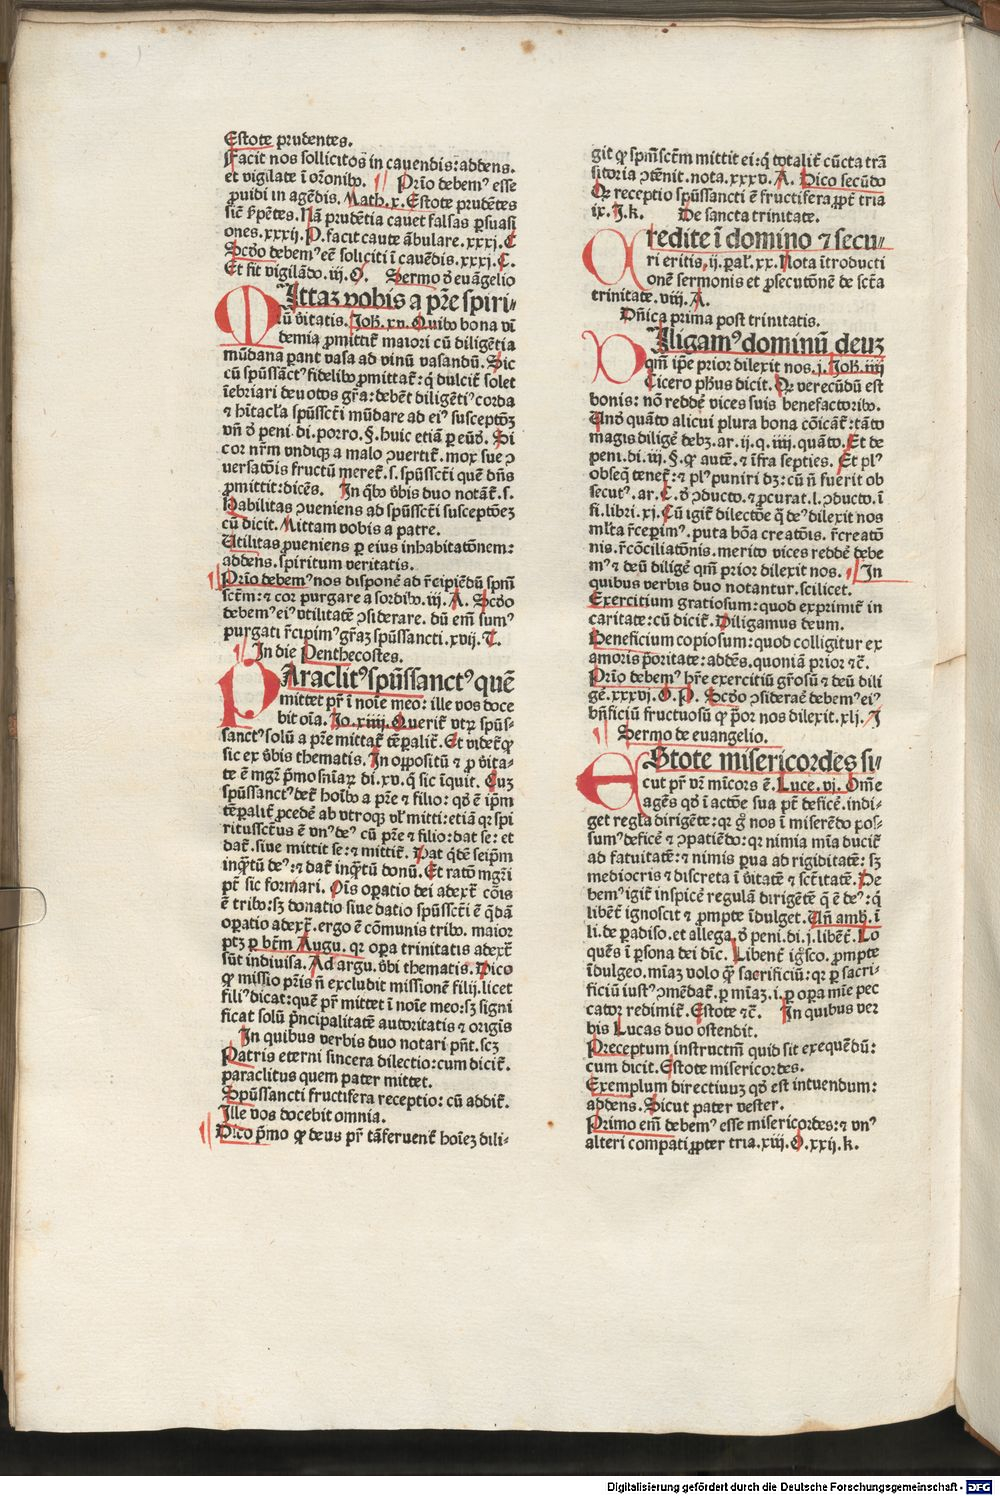 Estote prudentes.
Facit nos sollicitos in cauendis: addens.
et vigilate ī or̄onibꝰ. Prīo debemꝰ esse
ꝓuidi in agēdis. Math. x. Estote prudētes
sic̄ ẜpētes. Nā prudētia cauet falsas ꝑsuasi
ones. xxxij. P. facit caute ābulare. xxxj. C
Scd̄o debemꝰ eē soliciti ī cauēdis. xxxj. C.
Et fit vigilādo. iij. O. Sermo d̄ euāgelio
MIttaz vobis a pr̄e spiri-
tū v̄itatis. Joh̄. xv. Quibꝰ bona vī
demia ꝓmittit̄ maiori cū diligētia
mūdana parant vasa ad vinū vasandū. Sic
cū spūssāctꝰ fidelibꝰ ꝓmittat̄: q̄ dulcit̄ solet
īebriari deuotos gr̄a: debēt diligētiꝰ corda
⁊ hītacl̄a spūsscti mūdare ad eiꝰ susceptōꝫ
vn̄ d̄ peni. di. porro. §. huic etiā ꝑ eūd̄. Si
cor nr̄m vndiqꝫ a malo ꝯuertit̄. mox sue ꝯ
uersatōis fructū meret̄. s. spūsscti quē dn̄s
ꝓmittit: dicēs. In qͥbꝰ v̄bis duo notāt̄. s.
Habilitas ꝯueniens ad spūsscti susceptōeꝫ
cū dicit. Mittam vobis a patre.
Utilitas ꝓueniens ꝑ eius inhabitatōnem:
addens. spiritum veritatis.
Prīo debemꝰ nos disponē ad r̄cipiēdū spm̄
sctm̄: ⁊ cor purgare a sordibꝰ. iij. A. Scd̄o
debemꝰ eiꝰ vtilitatē ꝯsiderare. dū em̄ sumꝰ
purgati r̄cipimꝰ gr̄aꝫ spūssancti. xvij. T.
In die Penthecostes.
PAraclitꝰ spūssanctꝰ quē
mittet pr̄ ī noīe meo: ille vos doce
bit oīa. Jo. xiiij. Querit̄ vtꝝ spūs-
sanctꝰ solū a pr̄e mittat̄ tēꝑalit̄. Et videt̄ qꝫ
sic ex v̄bis thematis. In oppositū ⁊ ꝓ v̄ita-
te ē mgr̄ pͥmo sn̄iaꝝ di. xv. q̄ sic īquit. Cuꝫ
spūssanctꝰ det̄ hoībꝰ a pr̄e ⁊ filio: qd̄ ē ip̄m
tēꝑalit̄ ꝓcedē ab vtroqꝫ vl̓ mitti: etiā qꝛ spi
ritussctus ē vnꝰ deꝰ cū pr̄e ⁊ filio: dat se: et
dat̄. siue mittit se: ⁊ mittit̄. Dat qͥdē seip̄m
inqͣtū deꝰ: ⁊ dat̄ inqͣtū donū. Et ratō mgr̄i
pt̄ sic formari. Oīs oꝑatio dei adext̄ cōis
ē tribꝰ: sꝫ donatio siue datio spūsscti ē qͣdā
oꝑatio adext̄. ergo ē cōmunis tribꝰ. maior
ptꝫ ꝑ bt̄m Augu. qꝛ oꝑa trinitatis adext̄
sūt indiuisa. Ad argu. v̄bi thematis. Dico
qꝫ missio pr̄is n̄ excludit missionē filij. licet
filiꝰ dicat: quē pr̄ mittet ī noīe meo: sꝫ signi
ficat solū pͥncipalitatē autoritatis ⁊ origīs
In quibus verbis duo notari pn̄t. scꝫ
Patris eterni sincera dilectio: cum dicit̄.
paraclitus quem pater mittet.
Spūssancti fructifera receptio: cū addit̄.
Ille vos docebit omnia.
Dico pͥmo qꝫ deus pr̄ tā feruent̄ hoīeꝫ dili-
git qꝫ spm̄sctm̄ mittit ei: q̄ totalit̄ cūcta trā
sitoria ꝯtēnit. nota. xxxv. A. Dico secūdo
Qꝫ receptio spūssancti ē fructifera ꝓpt̄ tria
ix. J. k. De sancta trinitate.
CRedite ī domino ⁊ secu-
ri eritis. ij. ꝑal̓. xx. Nota ītroducti
onē sermonis et ꝓsecutōnē de sctā
trinitate. viij. A.
Dn̄ica prima post trinitatis.
DIligamꝰ dominū deuꝫ
qm̄ ip̄e prior dilexit nos. j. Joh̄. iiij
Cicero ph̄us dicit. Qꝫ verecūdū est
bonis: nō reddē vices suis benefactoribꝰ.
Und̄ quāto alicui plura bona cōicāt̄: tāto
magis diligē debꝫ. ar. ij. q. iiij. quāto. Et de
peni. di. iij. §. qꝫ autē. ⁊ īfra septies. Et plꝰ
obseq̄ tenet̄: ⁊ plꝰ puniri dꝫ: cū n̄ fuerit ob
secutꝰ. ar. C. d̄ ꝯducto. ⁊ ꝓcurat. l. ꝯducto. ī
fi. libri. xj. Cū igit̄ dilectōe q̄ deꝰ dilexit nos
ml̄ta r̄ceperimꝰ. puta bōa creatōis. r̄creatō
nis. r̄cōciliatōnis. merito vices reddē debe
mꝰ ⁊ deū diligē qm̄ prior dilexit nos. In
quibus verbis duo notantur. scilicet.
Exercitium gratiosum: quod exprimit̄ in
caritate: cū dicit̄. Diligamus deum.
Beneficium copiosum: quod colligitur ex
amoris pͥoritate: addēs. quoniā prior ⁊c̄.
Prīo debemꝰ hr̄e exercitiū gr̄osū ⁊ deū dili
gē. xxxvj. O. P. Scd̄o ꝯsideraē debemꝰ eiꝰ
bn̄ficiū fructuosū qꝫ pͥor nos dilexit. xlj. J
Sermo de euangelio.
EStote misericordes si-
cut pr̄ vr̄ mīcors ē. Luce. vj. Om̄e
agēs qd̄ ī actōe sua pt̄ deficē. indi-
get regla dirigēte: qꝛ gͦ nos ī miserēdo pos-
sumꝰ deficē ⁊ ꝯpatiēdo: qꝛ nimia mīa ducit̄
ad fatuitatē: ⁊ nimis ꝑua ad rigiditatē: sꝫ
mediocris ⁊ discreta ī v̄itatē ⁊ sctitatē. De
bemꝰ igit̄ inspicē regulā dirigētē q̄ ē deꝰ: q̄
libēt̄ ignoscit ⁊ ꝓmpte īdulget. Un̄ amb. ī
li. de ꝑadiso. et allega. d̄ peni. di. j. libēt̄. Lo
quēs ī ꝑsona dei dīc. Libent̄ igͦsco. ꝓmpte
īdulgeo. mīaꝫ volo qͣꝫ sacrificiū: qꝛ ꝑ sacri-
ficiū iustꝰ ꝯmēdat̄. ꝑ mīaꝫ. i. ꝑ oꝑa mīe pec
cator redimit̄. Estote ⁊c̄. In quibus ver
bis Lucas duo ostendit.
Preceptum instructm̄ quid sit exequēdū:
cum dicit. Estote misericordes.
Exemplum directiuuꝫ qd̄ est intuendum:
addens. Sicut pater vester.
Primo em̄ debemꝰ esse misericordes: ⁊ vnꝰ
alteri compati ꝓpter tria. xiii. O. xxij. k.
Digitalisierung gefördert durch die Deutsche Forschungsgemeinschaft - DFG